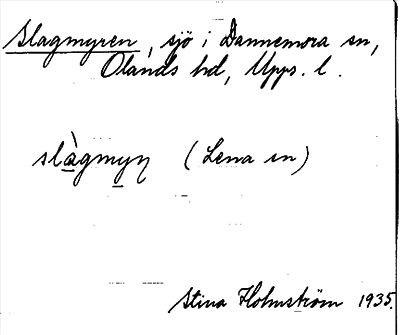 Slagmyren, sjö i Dannemora sn,
Olands hd, Upps. l.
slàgmyn (Lena sn)
Stina Holmström 1935.